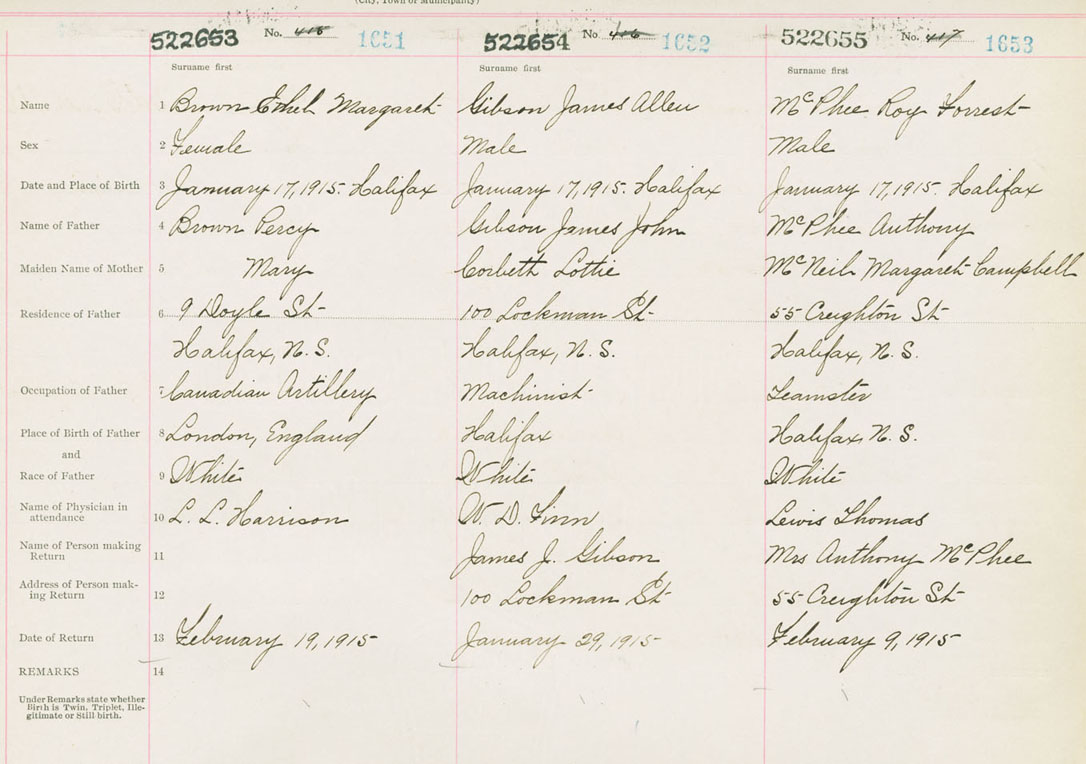 (City, Town or Municipality)
522653 No. 415 1651 522654 No 416 1652 522655 No. 417 1653
Surname first Surname first Surname first
Name 1 Brown Ethel Margaret Gibson James Allen McPhee Roy Forrest
Sex 2 Female Male Male
Date and Place of Birth 3 January 17, 1915. Halifax January 17, 1915. Halifax January 17, 1915. Halifax
Name of Father 4 Brown Percy Gibson James John McPhee Anthony
Maiden Name of Mother 5 Mary Corbett Lottie McNeil Margaret Campbell
Residence of Father 6 9 Doyle St 100 Lockman St 55 Creighton St
Halifax, N.S. Halifax, N.S. Halifax, N.S.
Occupation of Father 7 Canadian Artillery Machinist Teamster
Place of Birth of Father 8 London, England Halifax Halifax, N.S.
and
Race of Father 9 White White White
Name of Physician in
attendance 10 L. L. Harrison W. D. Finn Lewis Thomas
Name of Person making
Return 11 James J. Gibson Mrs Anthony McPhee
Address of Person mak-
ing Return 12 100 Lockman St 55 Creighton St
Date of Return 13 February 19, 1915 January 29, 1915 February 9, 1915
REMARKS 14
Under Remarks state whether
Birth is Twin, Triplet, Ille-
gitimate or Still birth.